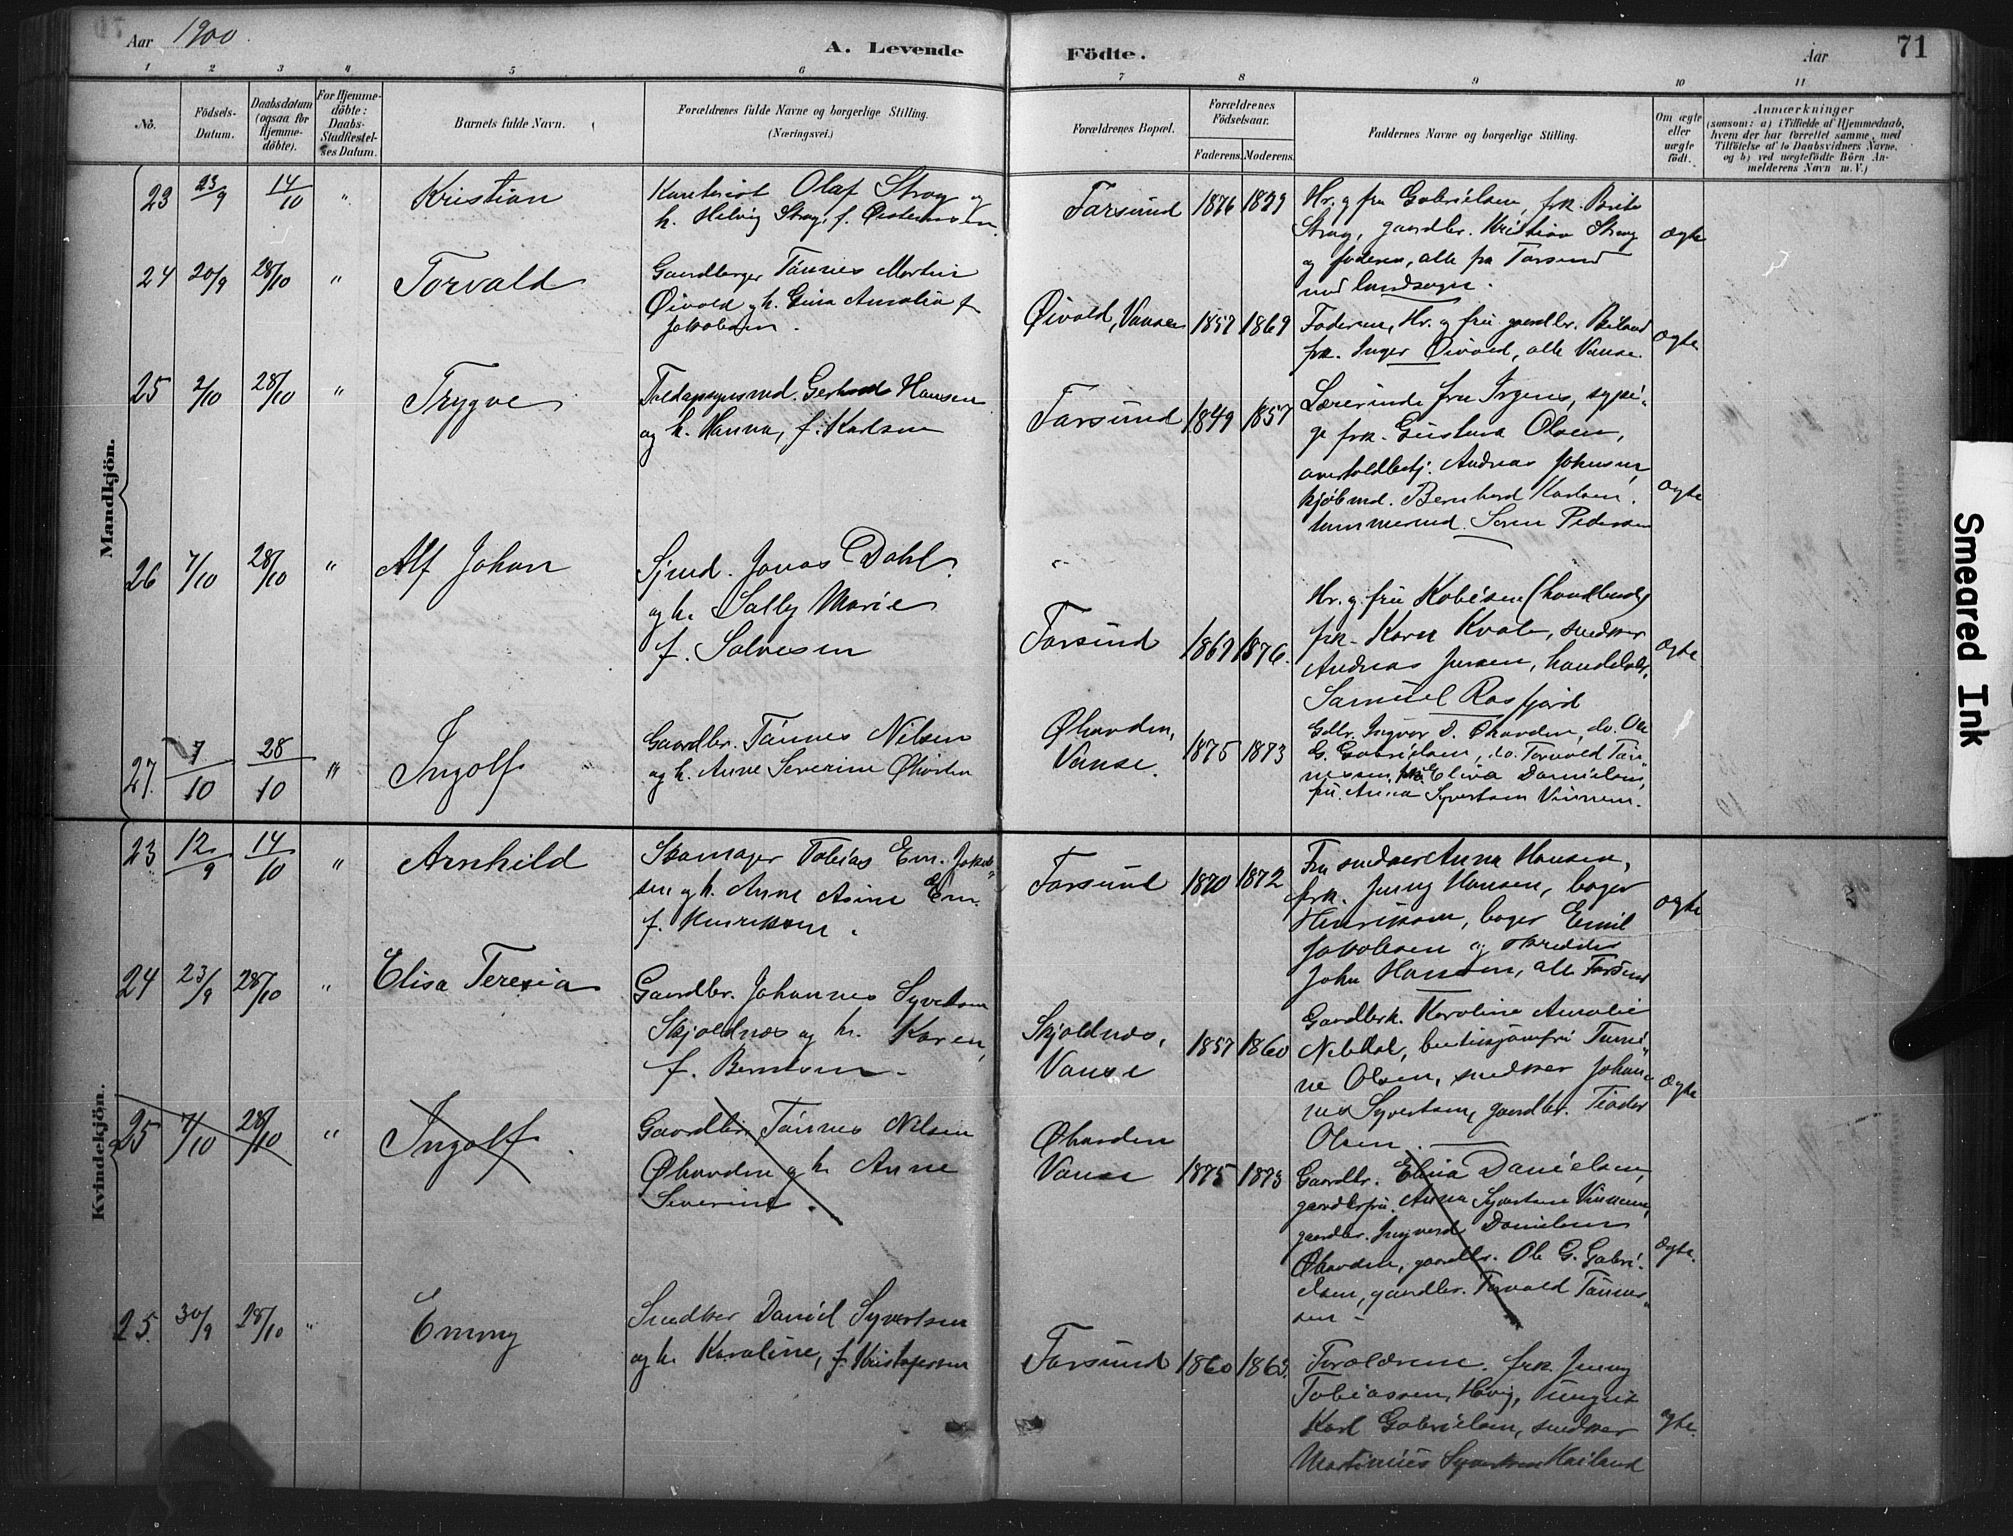 Aar 1900.
A. Levende
Födte.
Aar
71
1 2 3 4 5 6 7 8 9 10 11
No.
Födsels-Datum.
Daabsdatum (ogsaa for Hjemme-döbte).
For Hjemme-döbte: Daabs-Stadfæstel-ses Datum.
Barnets fulde Navn.
Forældrenes fulde Navne og borgerlige Stilling.
(Næringsvei.)
Forældrenes Bopæl.
Forældrenes Födselsaar.
Faderens. Moderens.
Faddernes Navne og borgerlige Stilling.
Om ægte eller uægte født.
Anmærkninger
(saasom: a) i Tilfælde af Hjemmedaab,
hvem der har forrettet samme, med
Tilföielse af to Daabsvidners Navne,
og b) ved uægtefödte Börn An-
melderens Navn m. V.)
Mandkjön.
23 23/9 14/10 " Kristian
Olaf Stray og
h. Helvig Stray, f.
Farsund 1876 1879
Hr. g fru Gabrielsen, frk.
Stray, gaardbr. Kristian Stray
og faderen, alle fra Farsund
med landsogn.
ægte
24 20/9 28/10 " Torvald
Gaardbruger Tönnes Martin
Öivold g h. Gina Amalia f.
Jakobsen.
Öivold, Vanse 1857 1869
Faderen, Hr. g fru gaardbr.
frk. Inger Öivold, alle Vanse.
ægte
25 2/10 28/10 " Trygve
Hansen
og h. Hanna, f. Karlsen
Farsund 1849 1857
Lærerinde fru Irgens, sypi-
ge frk. Gustava Olsen,
overtoldbetj. Andreas Johnsen,
kjöbmd. Bernhard Karlsen,
tømmermd. Sören Pedersen
ægte
26 7/10 28/10 " Alf Johan
Sjmd. Jonas Dahl.
og h. Sally Marie
f. Salvesen
Farsund 1869 1876.
Hr. g. fru
frk. Karen Kvale, snedker
Andreas Jensen, handelsbr.
Samuel Rosfjord
ægte
27. 7/10 28/10 " Ingolf
Gaardbr. Tönnes Nilsen
og h. Anne Severine
Vanse. 1875 1873
Gdbr. Ingvar D. do. Ole
G. Gabrielsen, do. Torvald Tön-
nessen, Eliva Danielsen,
fru. Anna Syvertsen Vinnem.
Kvindekjön.
23 12/9 14/10 " Arnhild
Skomager Tobias Em. Jakob-
sen g h. Anne Asine Em.
f. Henriksen.
Farsund 1870 1872
Fru snedker Anna Hansen,
frk. Jenny Hansen, bager
Henriksen, bager Emil
Jakobsen og skrædder
John Hansen, alle Farsund
ægte
24 23/9 28/10 " Elisa Teresia
Gaardbr. Johannes Syvertsen
Skjoldnæs og h. Karen,
f. Berntsen.
Skjoldnæs,
Vanse 1857 1860
Gaardbrk. Karoline Amalie
Nebdal, butikjomfru Tomi-
ne Olsen, snedker Johan-
nes Syvertsen, gaardbr. Tiodor
Olsen.
ægte
25 7/10 28/10 " Ingolf
Gaardbr. Tönnes Nilsen
g h. Anne
Severine.
Vanse 1875 1873
Gaardbr. Eliva Danielsen,
gaardbrfru. Anna Syvertsen Vinnem,
gaardbr. Ingvard Danielsen
gaardbr. Ole G. Gabri-
elsen, gaardbr. Torvald Tönnes-
sen.
ægte.
25. 30/9 28/10 " Emmy
Snedker Daniel Syvertsen
og h. Karoline, f. Kristofersen
Farsund 1860 1863.
Forældrene. frk. Jenny
Tobiassen, ungkar
Karl Gabrielsen, snedker
Martinius Syvertsen
ægte.
Smeared Ink